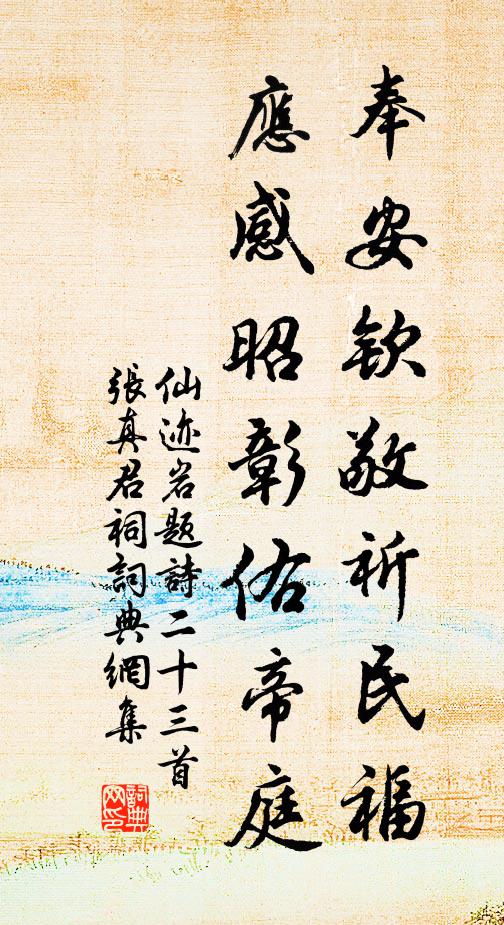 奉安欽敬祈民福
應感昭彰佑帝庭
仙迹岩題詩二十三首
張真君祠詞典網集
詞典網印